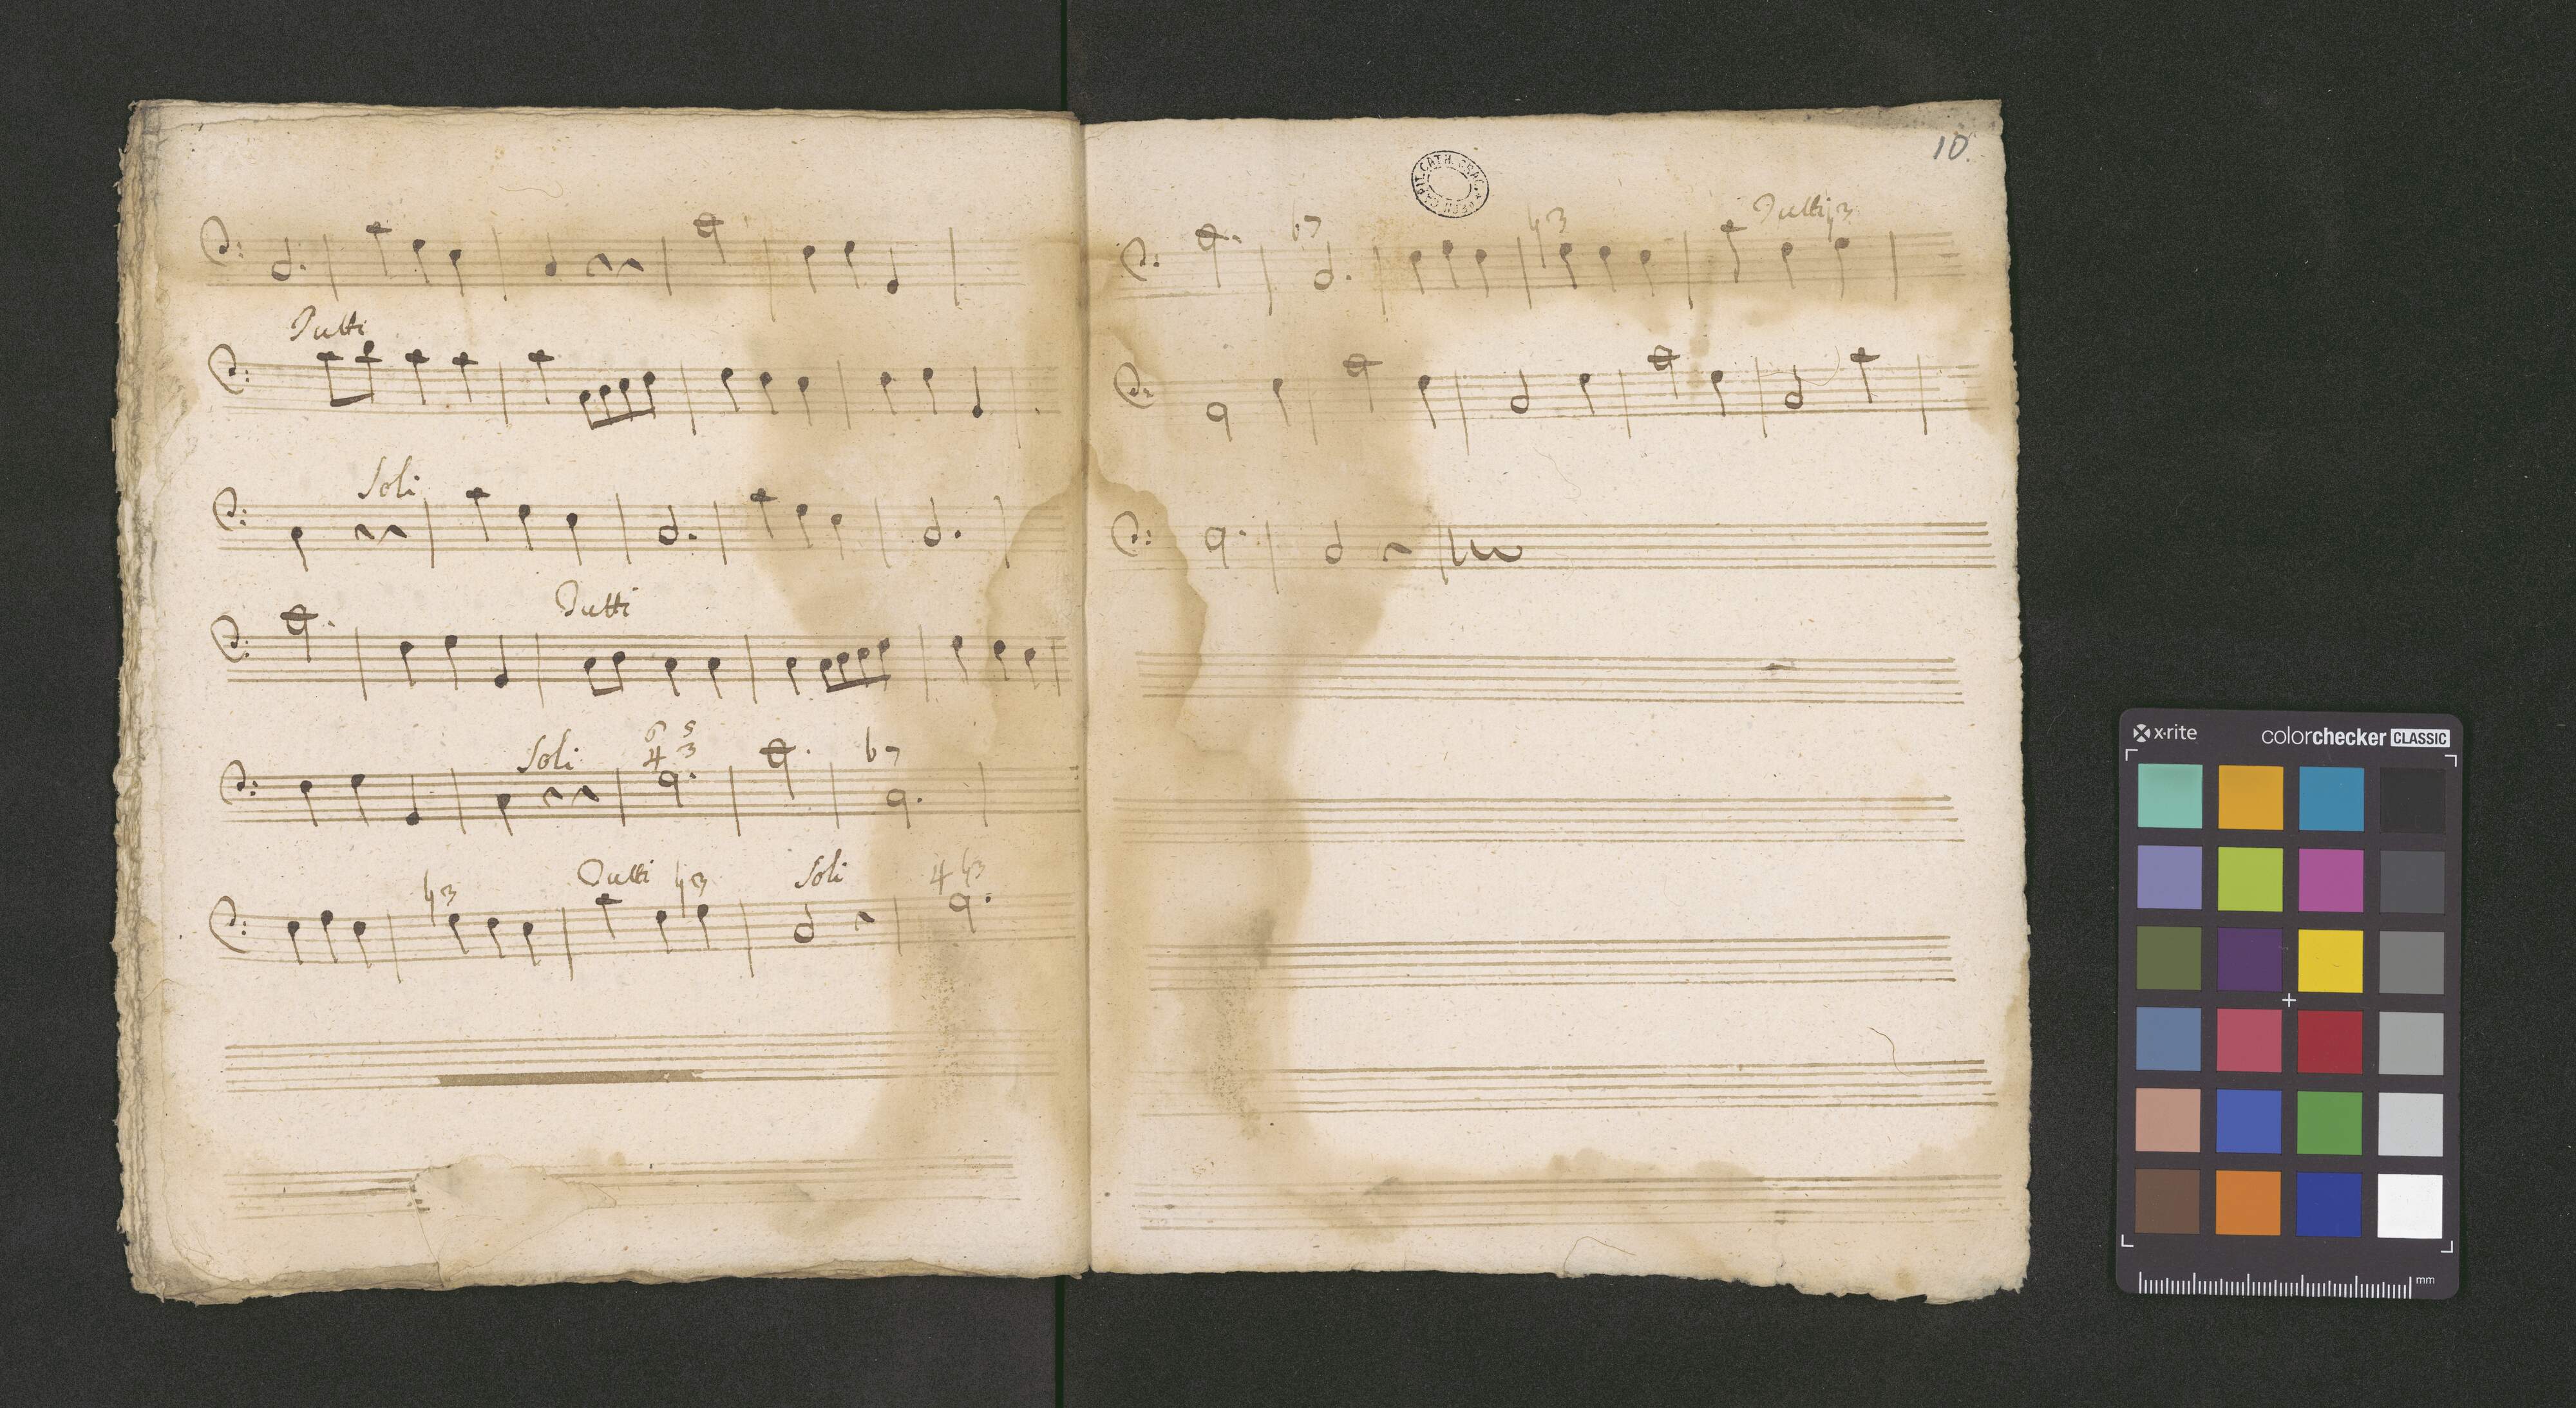 Tutti
Soli
Tutti
Soli 6 5
4 3 b7
Tutti ♮3 Soli 4 ♮3
♮3
10.
b7 ♮3 Tutti ♮3
x·rite colorchecker CLASSIC
mm